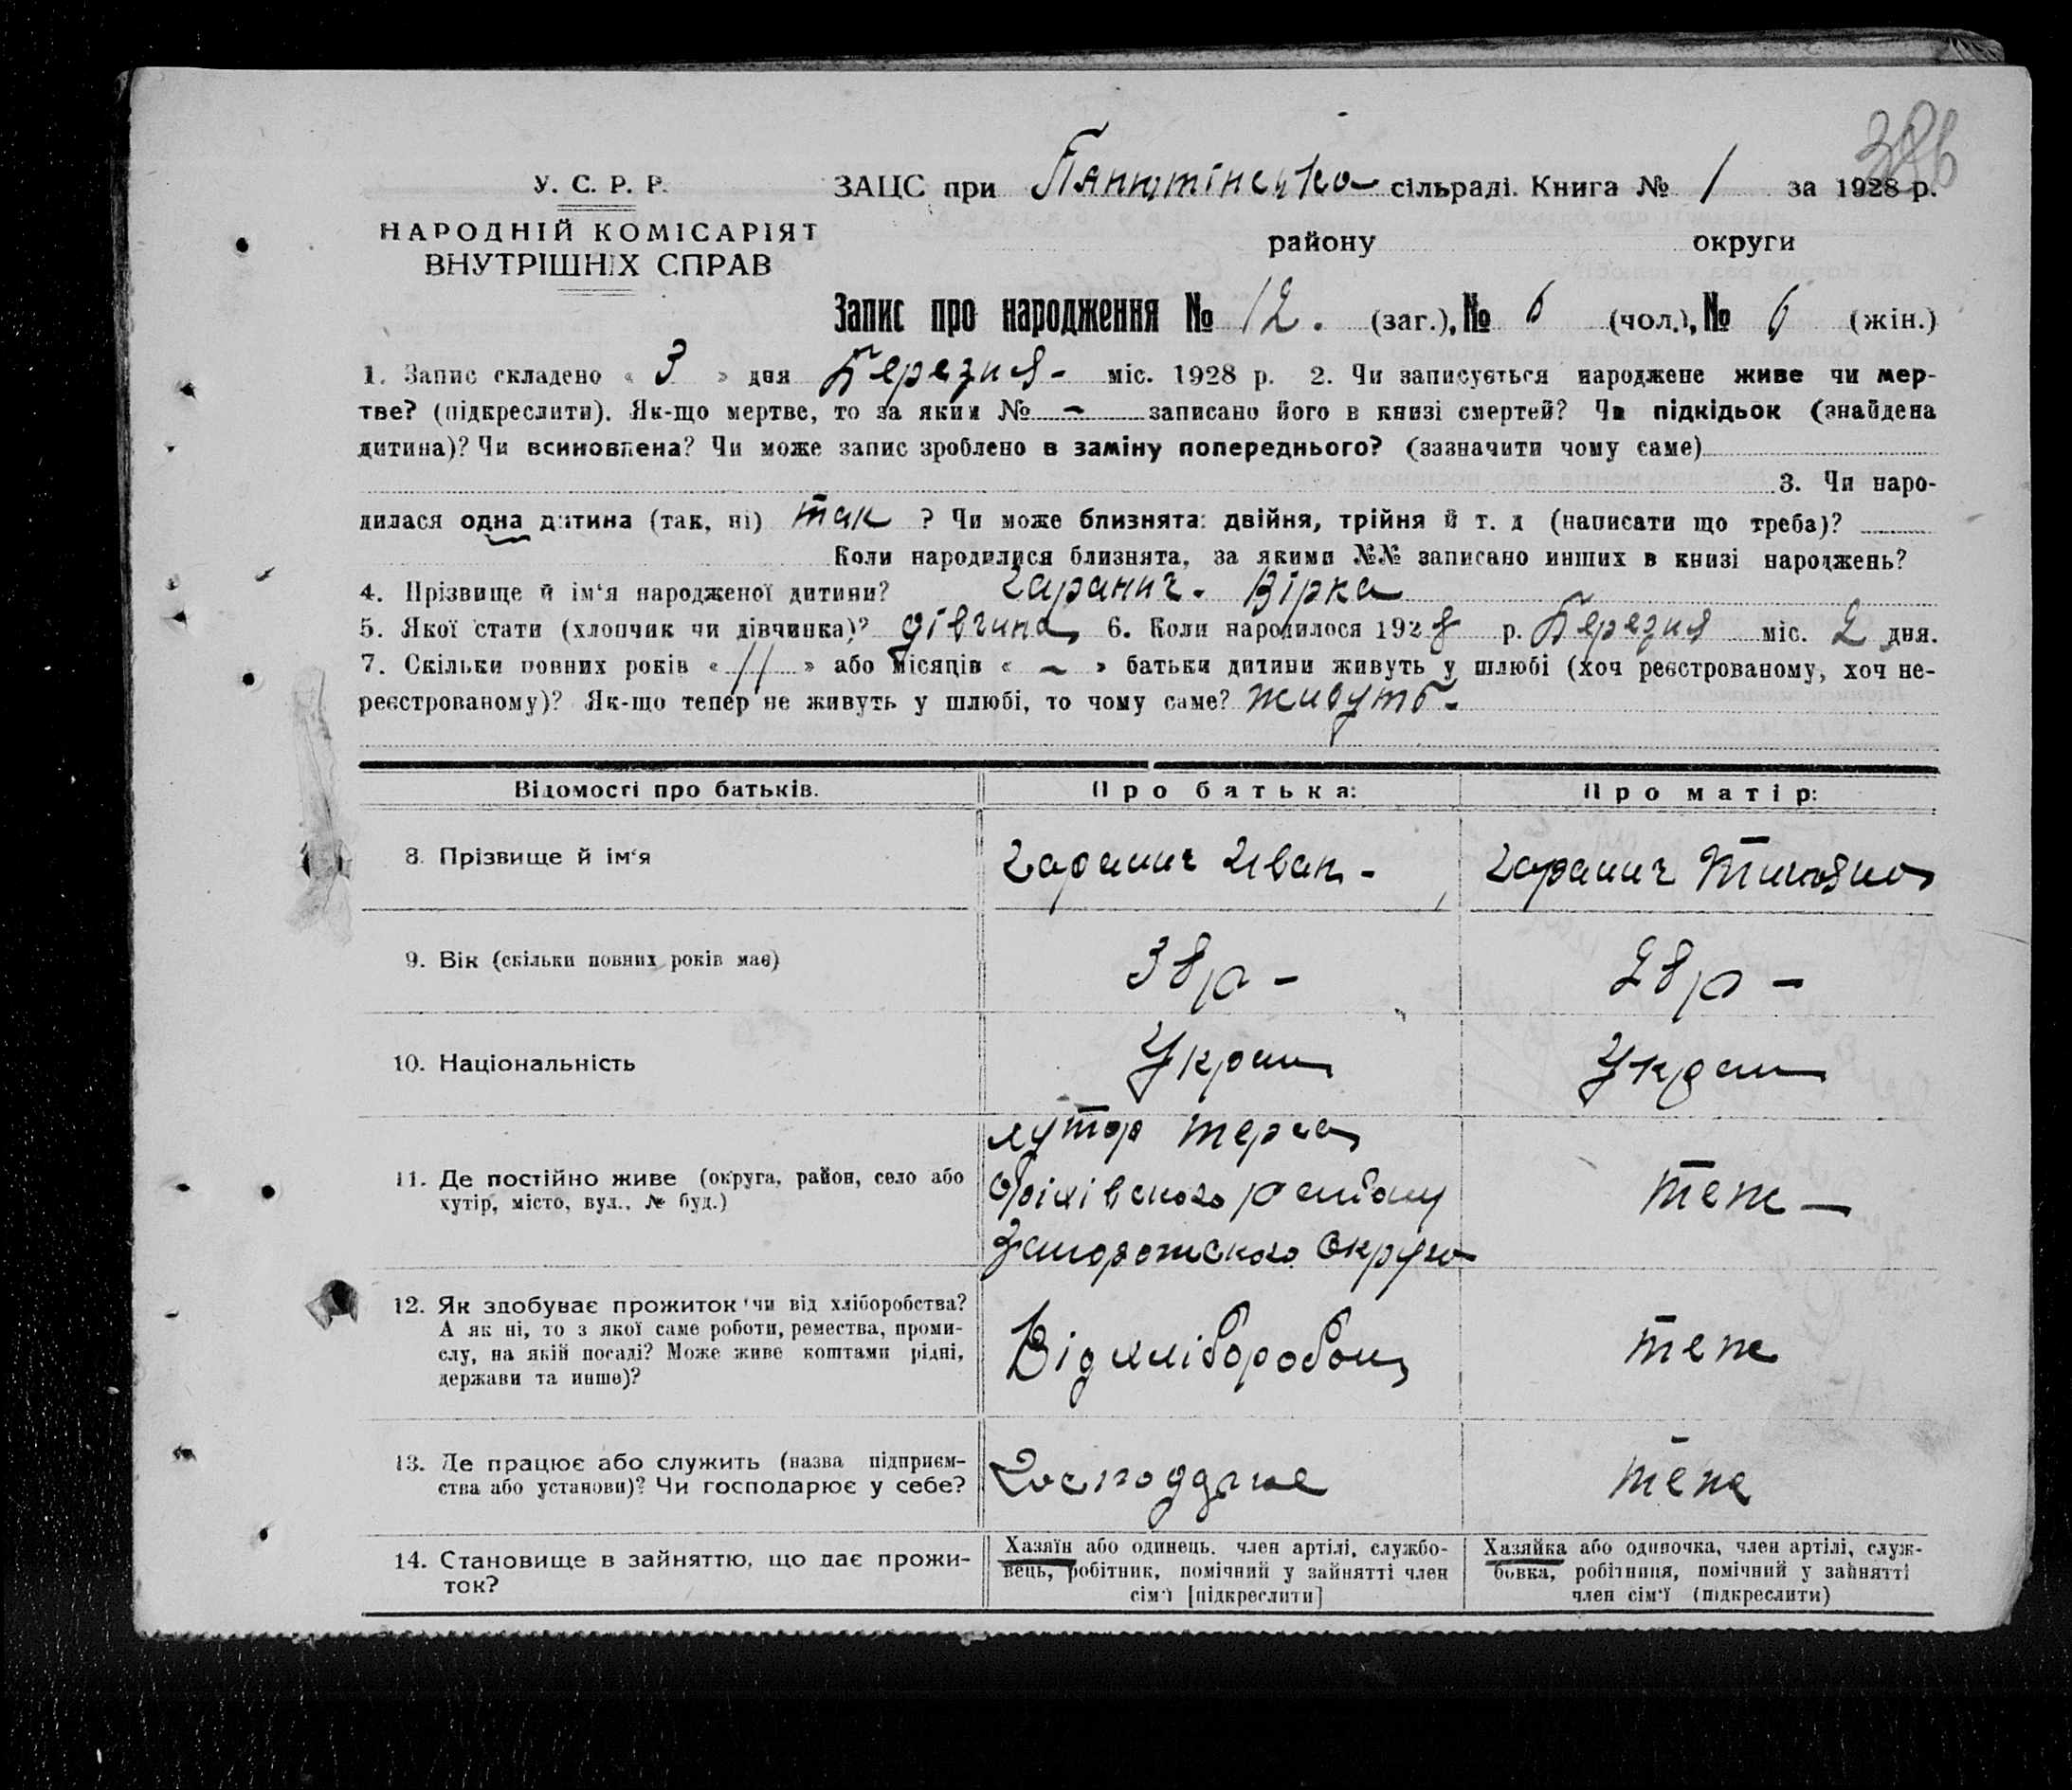 386
У. С. Р. Р.
ЗАЦС при сільраді. Книга № 1 за 1928 р.
НАРОДНІЙ КОМІСАРІЯТ
району округи
ВНУТРІШНІХ СПРАВ
Запис про народження № 12. (заг.), № 6 (чол.), № 6 (жін.)
1. Запис складено « 3 » дня Березня - міс. 1928 р. 2. Чи записується народжене живе чи мер-
тве? (підкреслити). Як-що мертве, то за яким № - записано його в книзі смертей? Чи підкідьок (знайдена
дитина)? Чи всиновлена? Чи може запис зроблено в заміну попереднього? (зазначити чому саме)
3. Чи наро-
дилася одна дитина (так, ні) так ? Чи може близнята: двійня, трійня й т. д (написати що треба)?
Коли народилися близнята, за якими №№ записано инших в книзі народжень?
4. Прізвище й ім'я народженої дитини? Гаранич - Вірка
5. Якої стати (хлопчик чи дівчинка)? дівчина 6. Коли народилося 1928 р. Березня міс. 2 дня.
7. Скільки повних років « 11 » або місяців « - » батьки дитини живуть у шлюбі (хоч реєстрованому, хоч не-
реєстрованому)? Як-що тепер не живуть у шлюбі, то чому саме? живуть -
Відомості про батьків. Про батька: Про матір:
8. Прізвище й ім'я Гаранич Иван - Гаранич
9. Вік (скільки повних років має) 38 р - 28 р -
10. Національність Украин Украин
хутор
11. Де постійно живе (округа, район, село або Оріхівского району теж -
хутір, місто, вул., № буд.)
Запорожского Округа
12. Як здобуває прожиток чи від хліборобства?
А як ні, то з якої саме роботи, ремества, проми-
слу, на якій посаді? Може живе коштами рідні, Від хлібороб теж
держави та инше)?
13. Де працює або служить (назва підприєм-
ства або установи)? Чи господарює у себе? теж
14. Становище в зайняттю, що дає прожи-
ток?
Хазяїн або одинець, член артілі, службо-
вець, робітник, помічний у зайнятті член
сім'ї [підкреслити]
Хазяйка або одиночка, член артілі, служ-
бовка, робітниця, помічний у зайнятті
член сім'ї (підкреслити)